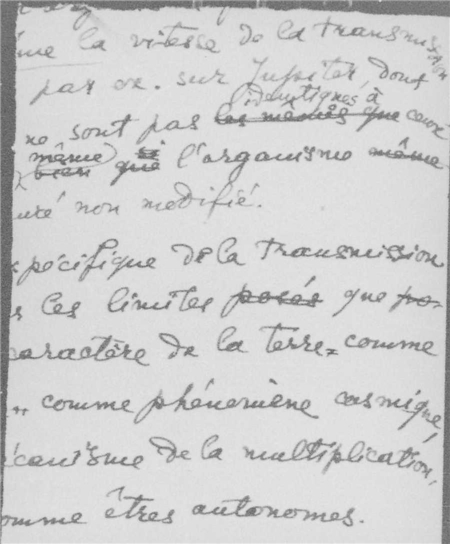 me la vitesse de la transmission
par ex. sur Jupiter, dont
identiques à
ne sont pas les mêmes que ceux
même si
bien que l'organisme même
uré non modifié.
spécifique de la transmission
s les limites posés que po-
caractère de la terre = comme
comme phénomène cosmique,
écanisme de la multiplication,
omme êtres autonomes.